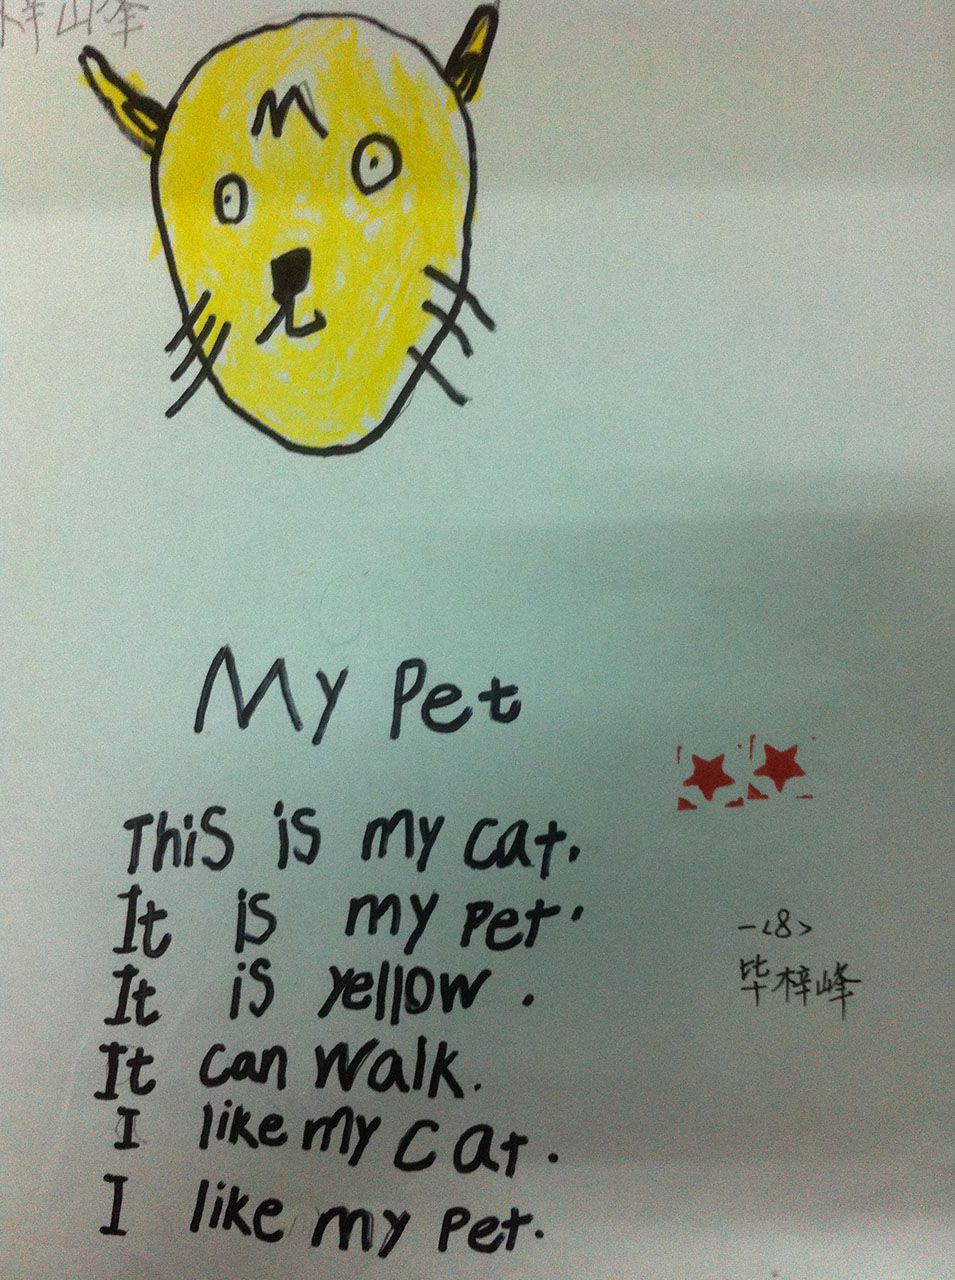 梓山峰
M
My Pet
This is my cat.
It is my pet.
It is yellow.
It can walk.
I like my cat.
I like my pet.
一<8>
毕梓峰